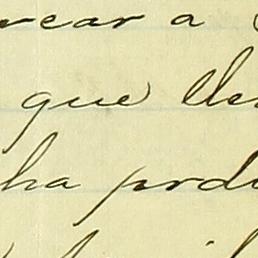 rear a
que lle
ha prdi